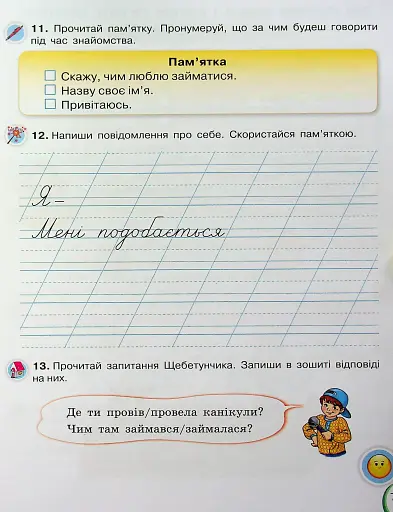 11. Прочитай пам'ятку. Пронумеруй, що за чим будеш говорити
під час знайомства.
Пам'ятка
Скажу, чим люблю займатися.
Назву своє ім'я.
Привітаюсь.
12. Напиши повідомлення про себе. Скористайся пам'яткою.
Я –
Мені подобається
13. Прочитай запитання Щебетунчика. Запиши в зошиті відповіді
на них.
Де ти провів/провела канікули?
Чим там займався/займалася?